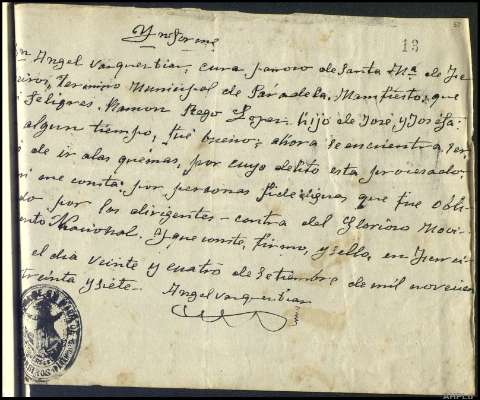 Ynforme
13
n Angel Varquertiar, cura parroco de Santa Mª de Fe
reiros, termino Municipal de Páradela. Manifiesto; que
i Feligres, Ramon Rego Lopez. hijo de José, y Josefa:
algun tiempo, fué bueno; ahora se encuentra,
de ir alas quemas, por cuyo delito esta procesado;
mi me consta: por personas fidedignas que fue obli-
do por los dirigentes - contra del Glorioso Movi-
ento Nacional. Y que conste, firmo, y sello, en
el dia veinte y cuatro de Setiembre de mil novecien
treinta y siete. Angel Varquertiar